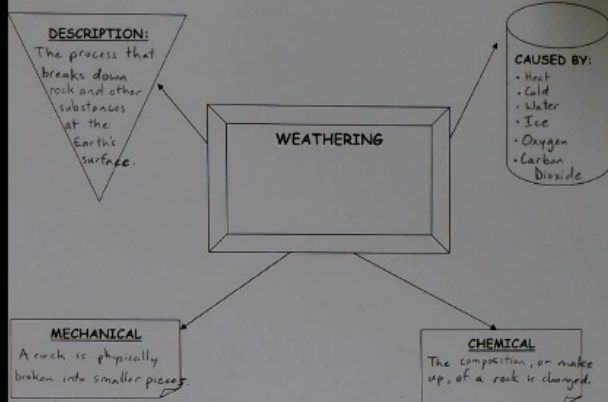 DESCRIPTION:
The process that
breaks down
rock and other
substances
at the
Earth's
surface.
CAUSED BY:
• Heat
• Cold
• Water
• Ice
• Oxygen
• Carbon
Dioxide
WEATHERING
MECHANICAL
A rock is physically
broken into smaller pieces.
CHEMICAL
The composition, or make
up, of a rock is changed.